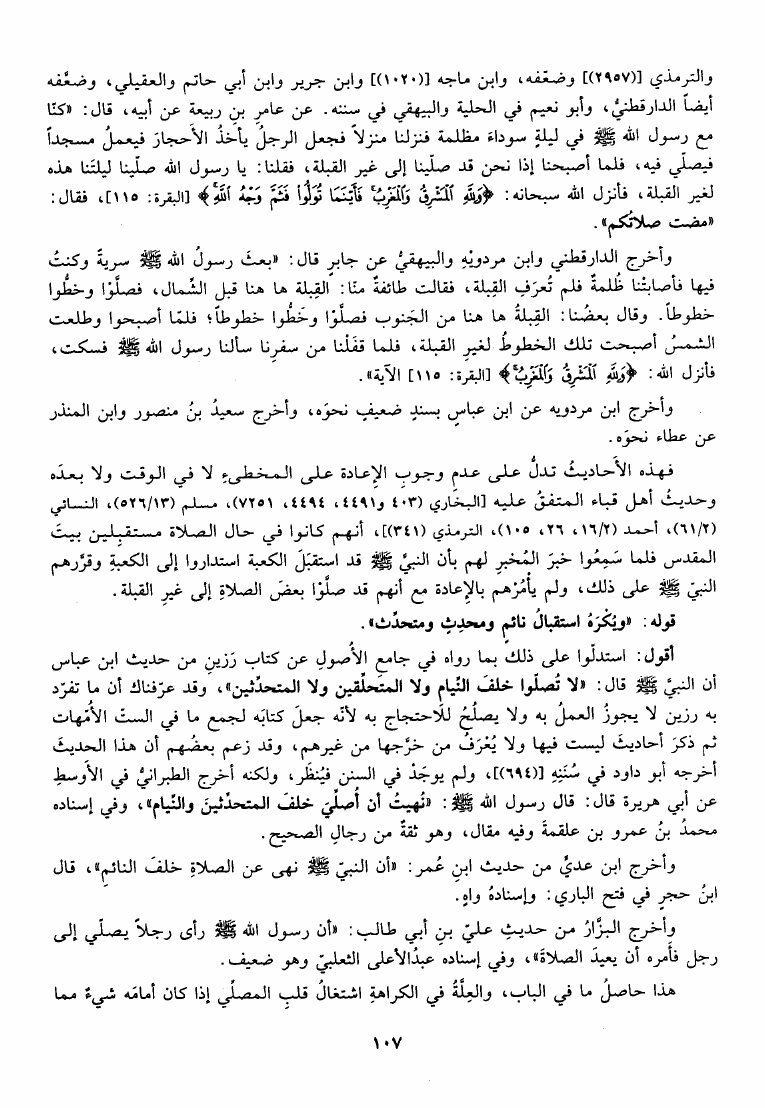 والترمذي [(٢٩٥٧)] وضعّفه، وابن ماجه [(١٠٢٠)] وابن جرير وابن أبي حاتم والعقيلي، وضعَّفه
أيضاً الدارقطنيُّ، وأبو نعيم في الحلية والبيهقي في سننه. عن عامرِ بنِ ربيعة عن أبيه، قال: «كنّا
مع رسول الله ﷺ في ليلةٍ سوداءَ مظلمة فنزلنا منزلاً فجعل الرجلُ يأخذُ الأحجارَ فيعملُ مسجداً
فيصلّي فيه، فلما أصبحنا إذا نحن قد صلّينا إلى غير القبلة، فقلنا: يا رسول الله صلّينا ليلتَنا هذه
لغير القبلة، فأنزل الله سبحانه: ﴿وَلِلَّهِ ٱلْمَشْرِقُ وَٱلْمَغْرِبُ فَأَيْنَمَا تُوَلُّوا۟ فَثَمَّ وَجْهُ ٱللَّهِ﴾ [البقرة: ١١٥]، فقال:
«مضت صلاتُكم».
وأخرج الدارقطني وابن مردويْهِ والبيهقيُّ عن جابرٍ قال: «بعثَ رسولُ الله ﷺ سريةً وكنتُ
فيها فأصابتْنا ظُلمةٌ فلم تُعرَفِ القِبلة، فقالت طائفةٌ منّا: القِبلة ها هنا قبل الشّمال، فصلَّوْا وخطُّوا
خطوطاً. وقال بعضُنا: القِبلةُ ها هنا من الجَنوب فصلَّوْا وخَطُّوا خطوطاً؛ فلمّا أصبحوا وطلعت
الشمسُ أصبحت تلك الخطوطُ لغيرِ القبلة، فلما قفَلْنا من سفرِنا سألنا رسول الله ﷺ فسكت،
فأنزل الله: ﴿وَلِلَّهِ ٱلْمَشْرِقُ وَٱلْمَغْرِبُ﴾ [البقرة: ١١٥] الآية».
وأخرج ابن مردويه عن ابن عباسٍ بسندٍ ضعيفٍ نحوَه، وأخرج سعيدُ بنُ منصور وابن المنذر
عن عطاء نحوَه.
فهذه الأحاديثُ تدلُّ على عدمِ وجوبِ الإعادة على المخطىءِ لا في الوقت ولا بعدَه
وحديثُ أهل قباء المتفقُ عليه [البخاري (٤٠٣ و٤٤٩١، ٤٤٩٤، ٧٢٥١)، مسلم (٥٢٦/١٣)، النسائي
(٦١/٢)، أحمد (١٦/٢، ٢٦، ١٠٥)، الترمذي (٣٤١)]، أنهم كانوا في حال الصلاة مستقبِلين بيتَ
المقدس فلما سَمِعُوا خبرَ المُخبرِ لهم بأن النبيَّ ﷺ قد استقبَلَ الكعبة استداروا إلى الكعبةِ وقرَّرهم
النبيّ ﷺ على ذلك، ولم يأمُرْهم بالإعادة مع أنهم قد صلَّوْا بعضَ الصلاةِ إلى غيرِ القبلة.
قوله: «ويُكْرَهُ استقبالُ نائمٍ ومحدِثٍ ومتحدِّث».
أقول: استدلّوا على ذلك بما رواه في جامعِ الأصولِ عن كتاب رَزينٍ من حديث ابن عباس
أن النبيَّ ﷺ قال: «لا تُصلّوا خلفَ النِّيام ولا المتحلّقين ولا المتحدِّثين»، وقد عرّفناك أن ما تفرّد
به رزين لا يجوزُ العملُ به ولا يصلُحُ للاحتجاج به لأنّه جعلَ كتابَه لجمع ما في الستّ الأُمّهات
ثم ذكرَ أحاديثَ ليست فيها ولا يُعْرَفُ من خرَّجها من غيرهم، وقد زعم بعضُهم أن هذا الحديثَ
أخرجه أبو داود في سُنَنِهِ [(٦٩٤)]، ولم يوجَدْ في السنن فيُنظَر، ولكنه أخرج الطبرانيُّ في الأوسطِ
عن أبي هريرة قال: قال رسول الله ﷺ: «نُهيتُ أن أُصلِّيَ خلفَ المتحدِّثينَ والنِّيام»، وفي إسناده
محمدُ بنُ عمرو بن علقمةَ وفيه مقال، وهو ثقةٌ من رجالِ الصحيح.
وأخرج ابن عديٍّ من حديث ابنِ عُمر: «أن النبيّ ﷺ نهى عن الصلاةِ خلفَ النائمِ»، قال
ابنُ حجرٍ في فتح الباري: وإسنادهُ واهٍ.
وأخرج البزَّارُ من حديثِ عليّ بنِ أبي طالب: «أن رسول الله ﷺ رأى رجلاً يصلّي إلى
رجل فأمره أن يعيدَ الصلاةَ»، وفي إسناده عبدُالأعلى الثعلبيّ وهو ضعيف.
هذا حاصلُ ما في الباب، والعِلَّةُ في الكراهةِ اشتغالُ قلبِ المصلِّي إذا كان أمامَه شيءٌ مما
١٠٧